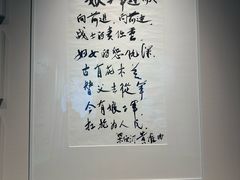 娘子军连歌
向前进，向前进，
战士的责任重
妇女的怨仇深
古有花木兰
替父去从军
今有娘子军
扛枪为人民